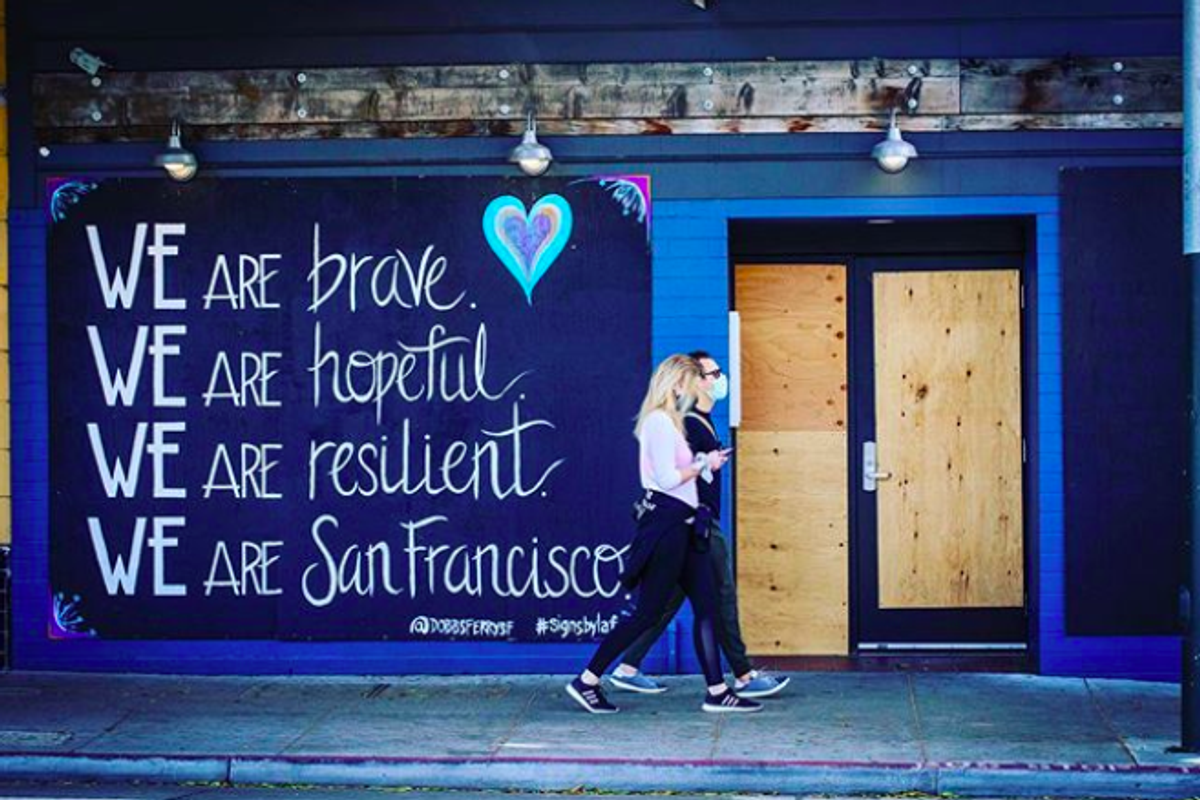 WE ARE brave.
WE ARE hopeful.
WE ARE resilient.
WE ARE San Francisco.
@DOBBSFERRYSF #signsbylaf